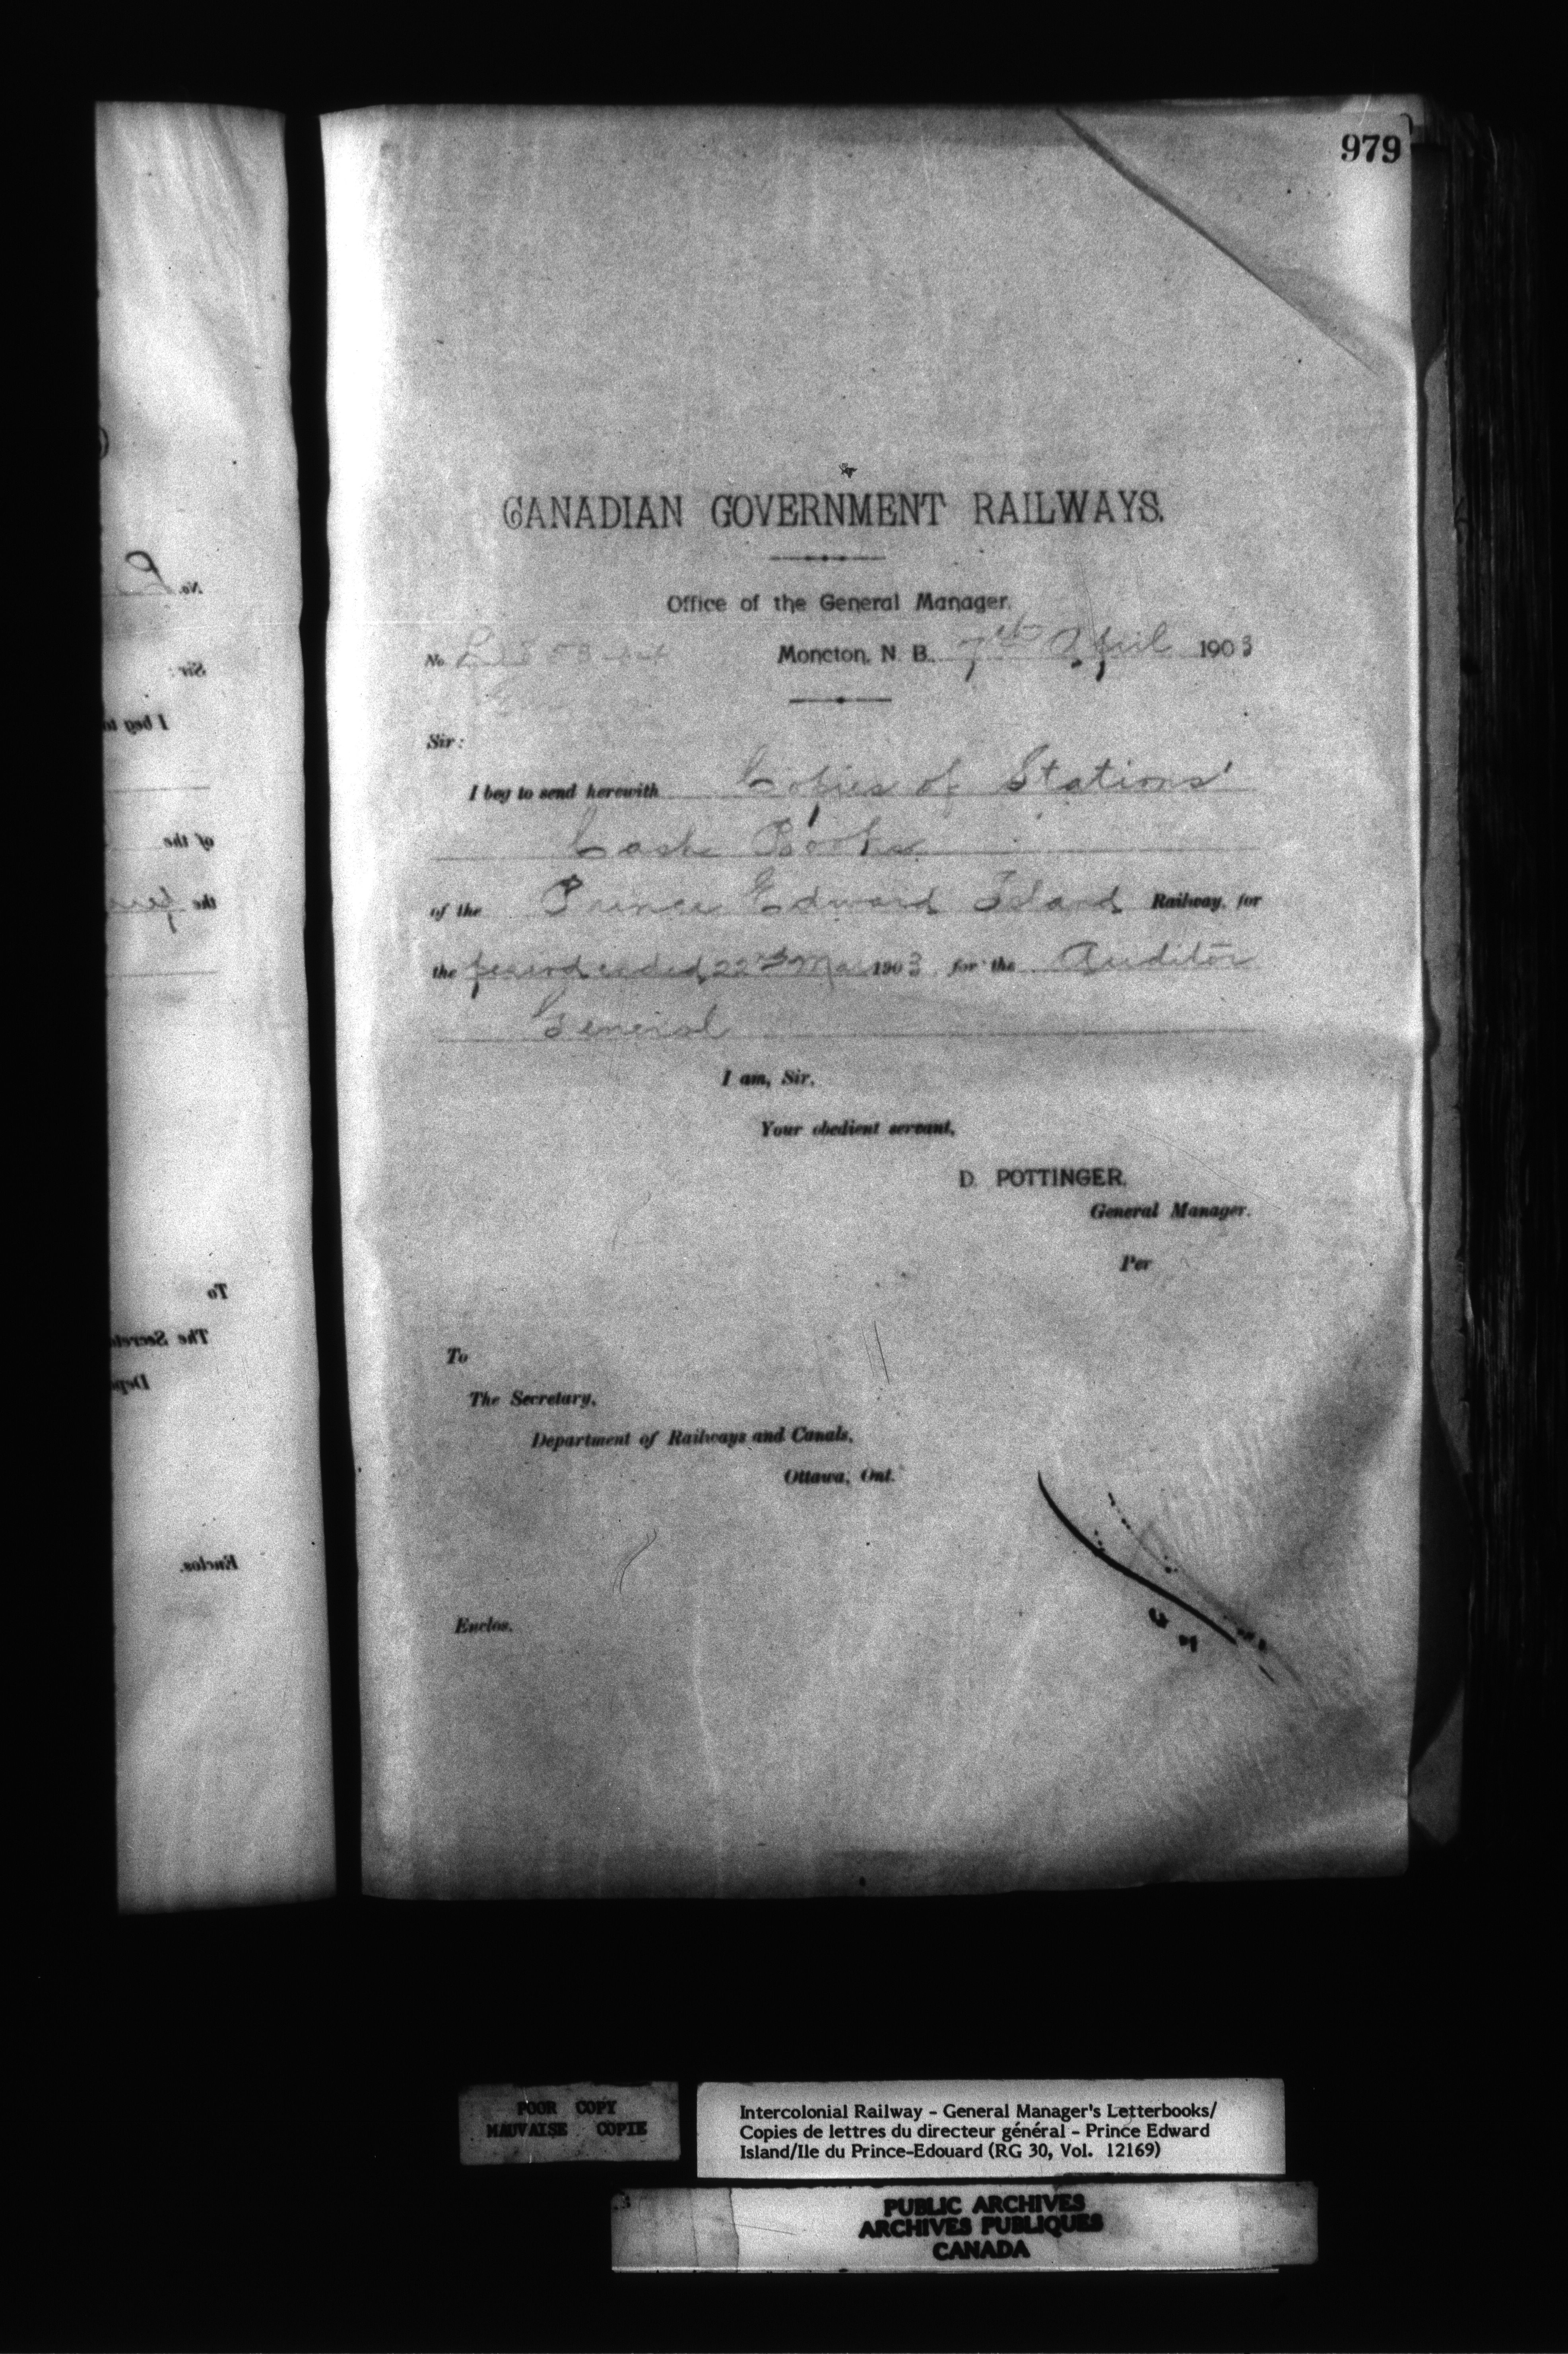 979
CANADIAN GOVERNMENT RAILWAYS.
Office of the General Manager.
No. Moncton, N. B. 7th April 1903
Sir:
I beg to send herewith Copies of Stations'
Cash Books
of the Prince Edward Island Railway, for
the period ended 22nd Mar 1903 for the Auditor
General
I am, Sir,
Your obedient servant,
D. POTTINGER,
General Manager.
Per
To
The Secretary,
Department of Railways and Canals,
Ottawa, Ont.
Enclos.
No.
Sir:
I beg to
of the
the
To
The Secreta
Depa
Enclos.
POOR COPY
MAUVAISE COPIE
Intercolonial Railway - General Manager's Letterbooks/
Copies de lettres du directeur général - Prince Edward
Island/Ile du Prince-Edouard (RG 30, Vol. 12169)
PUBLIC ARCHIVES
ARCHIVES PUBLIQUES
CANADA